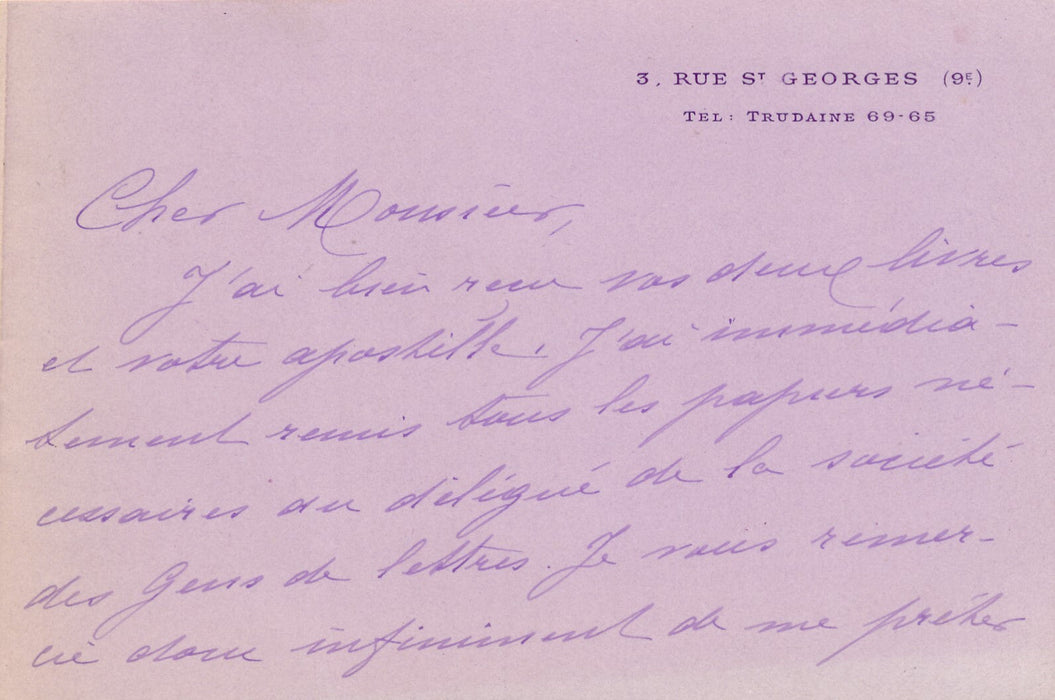 3, RUE ST GEORGES (9E)
TEL: TRUDAINE 69-65
Cher Monsieur,
J'ai bien reçu vos deux livres
et votre apostille. J'ai immédia-
tement remis tous les papiers né-
cessaires au délégué de la société
des Gens de lettres. Je vous remer-
cie donc infiniment de me prêter